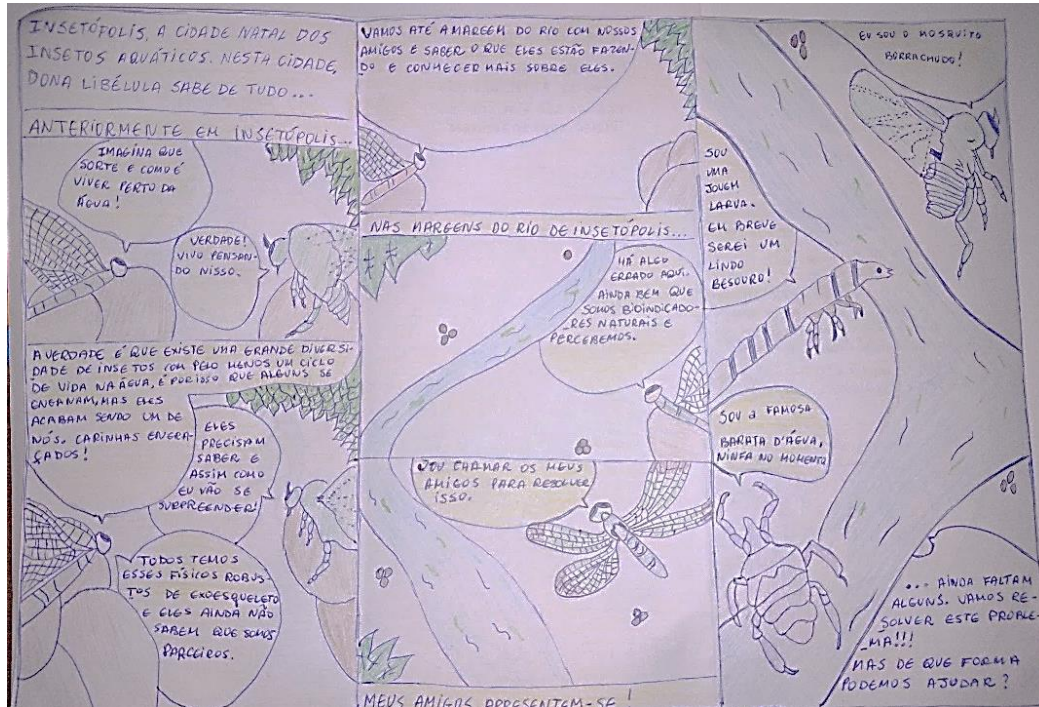 INSETÓPOLIS, A CIDADE NATAL DOS
INSETOS AQUÁTICOS. NESTA CIDADE,
DONA LIBÉLULA SABE DE TUDO...
ANTERIORMENTE EM INSETÓPOLIS...
IMAGINA QUE
SORTE E COMO É
VIVER PERTO DA
ÁGUA!
VERDADE!
VIVO PENSAN-
DO NISSO.
A VERDADE É QUE EXISTE UMA GRANDE DIVERSI-
DADE DE INSETOS COM PELO MENOS UM CICLO
DE VIDA NA ÁGUA, É POR ISSO QUE ALGUNS SE
ENGANAM, MAS ELES
ACABAM SENDO UM DE
NÓS. CARINHAS ENGRA-
ÇADOS!
ELES
PRECISAM
SABER E
ASSIM COMO
EU VÃO SE
SURPREENDER!
TODOS TEMOS
ESSES FÍSICOS ROBUS-
TOS DE EXOESQUELETO
E ELES AINDA NÃO
SABEM QUE SOMOS
PARCEIROS.
VAMOS ATÉ A MARGEM DO RIO COM NOSSOS
AMIGOS E SABER O QUE ELES ESTÃO FAZEN-
DO E CONHECER MAIS SOBRE ELES.
NAS MARGENS DO RIO DE INSETÓPOLIS...
HÁ ALGO
ERRADO AQUI.
AINDA BEM QUE
SOMOS BIOINDICADO-
RES NATURAIS E
PERCEBEMOS.
VOU CHAMAR OS MEUS
AMIGOS PARA RESOLVER
ISSO.
MEUS AMIGOS APRESENTEM-SE!
EU SOU O MOSQUITO
BORRACHUDO!
SOU
UMA
JOVEM
LARVA.
EM BREVE
SEREI UM
LINDO
BESOURO!
SOU a FAMOSA
BARATA D'ÁGUA,
NINFA NO MOMENTO
... AINDA FALTAM
ALGUNS. VAMOS RE-
SOLVER ESTE PROBLE-
MA!!!
MAS DE QUE FORMA
PODEMOS AJUDAR?